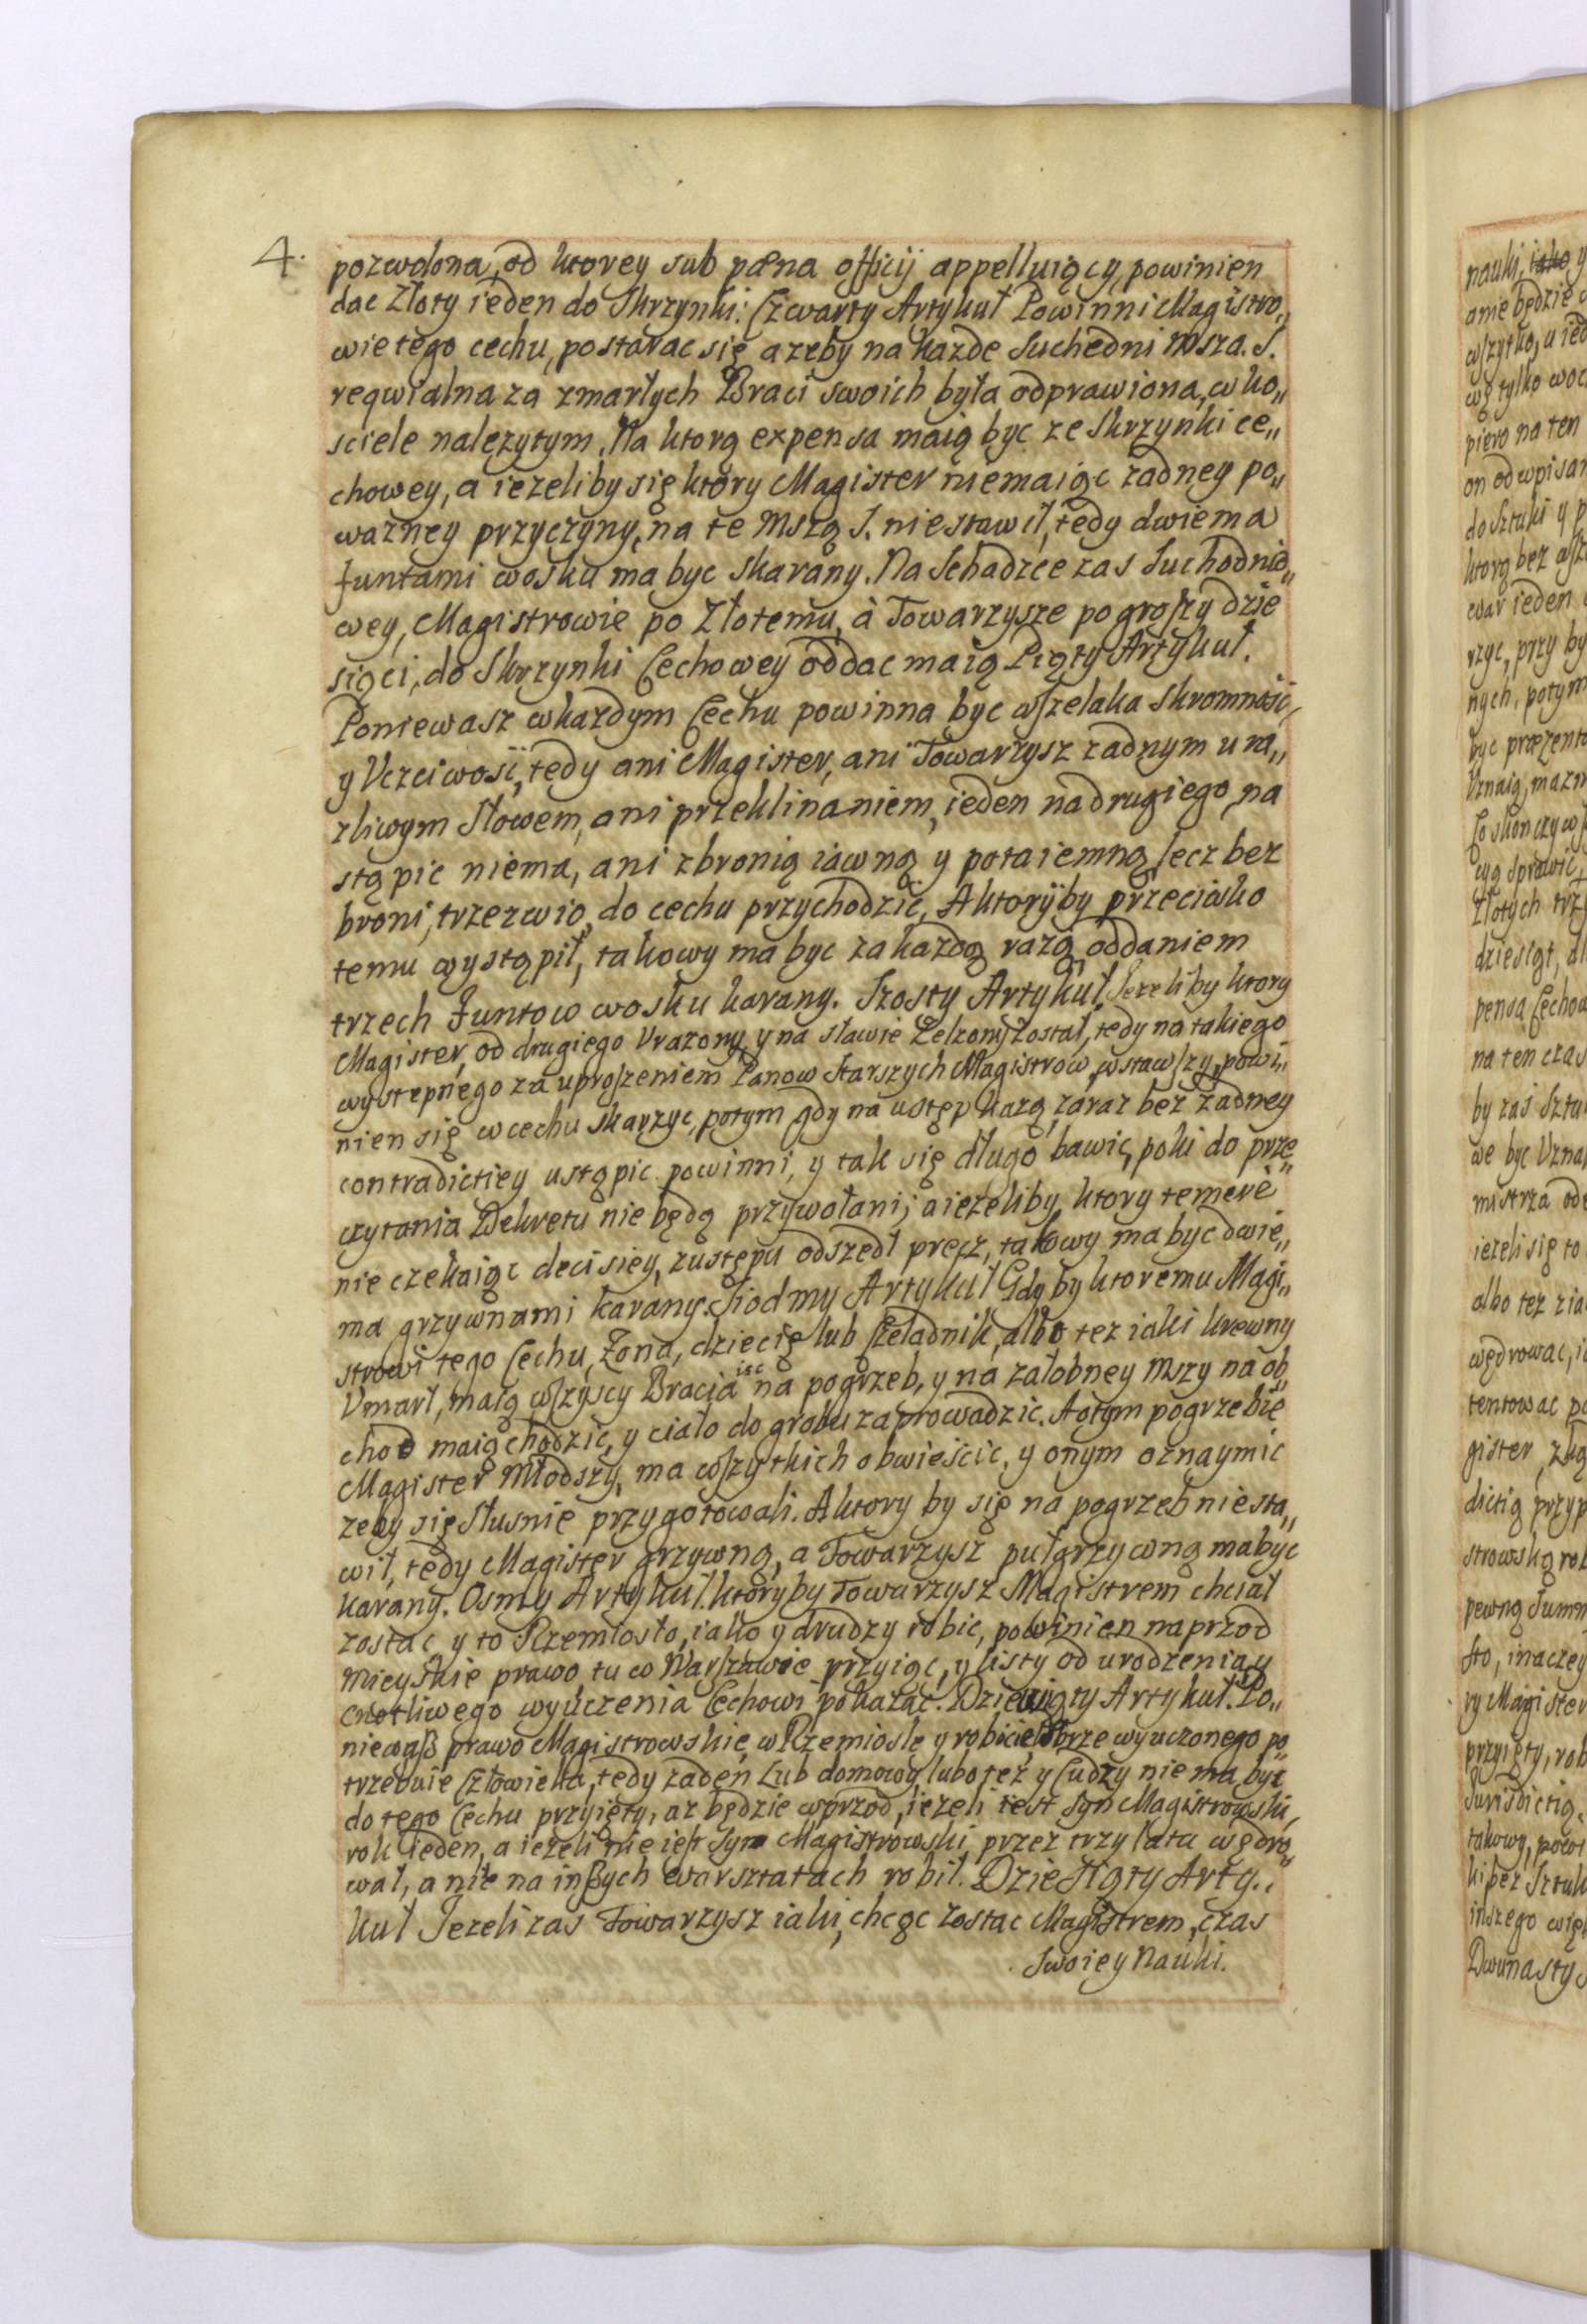 4.
pozwolona, od ktorey sub pæna officij appelluiący, powinien
dac Złoty ieden do Skrzynki: Czwarty Artykuł Powinni Magistro„
wie tego cechu, postarac się azeby na kazde Suchedni msza. S.
reqwialna za zmarłych Braci swoich była odprawiona, w ko„
sciele nalezytym. Na ktorą expensa maią byc ze Skrzynki ce„
chowey, a iezeliby się ktory Magister niemaiąc zadney po„
wazney przyczyny, na te Mszą S. niestawił, tedy dwiema
funtami wosku ma byc skarany. Na Schadzce zas Suchodnio„
wey, Magistrowie po Złotemu, à Towarzysze po groszy dzie„
sięci, do Skrzynki Cechowey oddac maią Piąty Artykuł.
Poniewasz w kazdym Cechu powinna byc wszelaka skromność,
y Uczciwosć, tedy ani Magister, ani Towarzysz zadnym ura„
zliwym Słowem, ani przeklinaniem, ieden na drugiego na
stąpic niema, ani z bronią iawną y potaiemną lecz bez
broni, trzezwio, do cechu przychodzic, A ktoryby przeciwko
temu wystąpił, takowy ma byc za kazdą razą oddaniem
trzech funtow wosku karany. Szosty Artykuł. Jezeliby ktory
Magister, od drugiego Urazony, y na sławie Zelzony Został, tedy na takiego
wystepnego za uproszeniem Panow Starszych Magistrow, wstawszy, powi„
nien się w cechu skarzyc, potym gdy na ustęp kazą, zaraz bez zadney
contradictiey ustąpic powinni, y tak się długo bawic, poki do prze„
czytania Dekretu nie będą przywołani; a iezeliby ktory temere
nie czekaiąc decisiey, z ustępu odszedł precz, takowy ma byc dwie„
ma grzywnami karany. Siodmy Artykuł Gdyby ktoremu Magi„
strowi tego Cechu, Zona, dziecię lub Czeladnik, albo tez iaki krewny
Umarł, maią wszyscy Bracia isc na pogrzeb, y na załobney Mszy na ob„
chod maią chodzic, y ciało do grobu zaprowadzic. A otym pogrzebie
Magister Młodszy, ma wszytkich obwieścic, y onym oznaymic
zeby się słusnie przygotowali. A ktory by się na pogrzeb niesta„
wił, tedy Magister grzywną, a Towarzysz pułgrzywną ma byc
karany. Osmy Artykuł. ktoryby Towarzysz Magistrem chciał
zostac y to Rzemiosło, iako y drudzy robic, powinien naprzod
Mieyskie prawo tu w Warszawie przyiąc, y listy od urodzenia y
cnotliwego wyuczenia Cechowi pokazac. Dziewiąty Artykuł. Po„
niewaß prawo Magistrowskie, w Rzemioslę y robicie dobrze wyuczonego po„
trzebuie Człowieka, tedy zaden Lub domowy lubo tez y Cudzy nie ma byc
do tego Cechu przyięty, az będzie wprzod, iezeli iest Syn Magistrowski,
rok ieden, a iezeli nie iest Syn Magistrowski przez trzy lata wędro„
wał, a nie na inßych warsztatach robił. Dziesiąty Arty„
kuł Jezeli zas Towarzysz iaki, chcąc Zostac Magistrem, czas
swoiey Nauki.